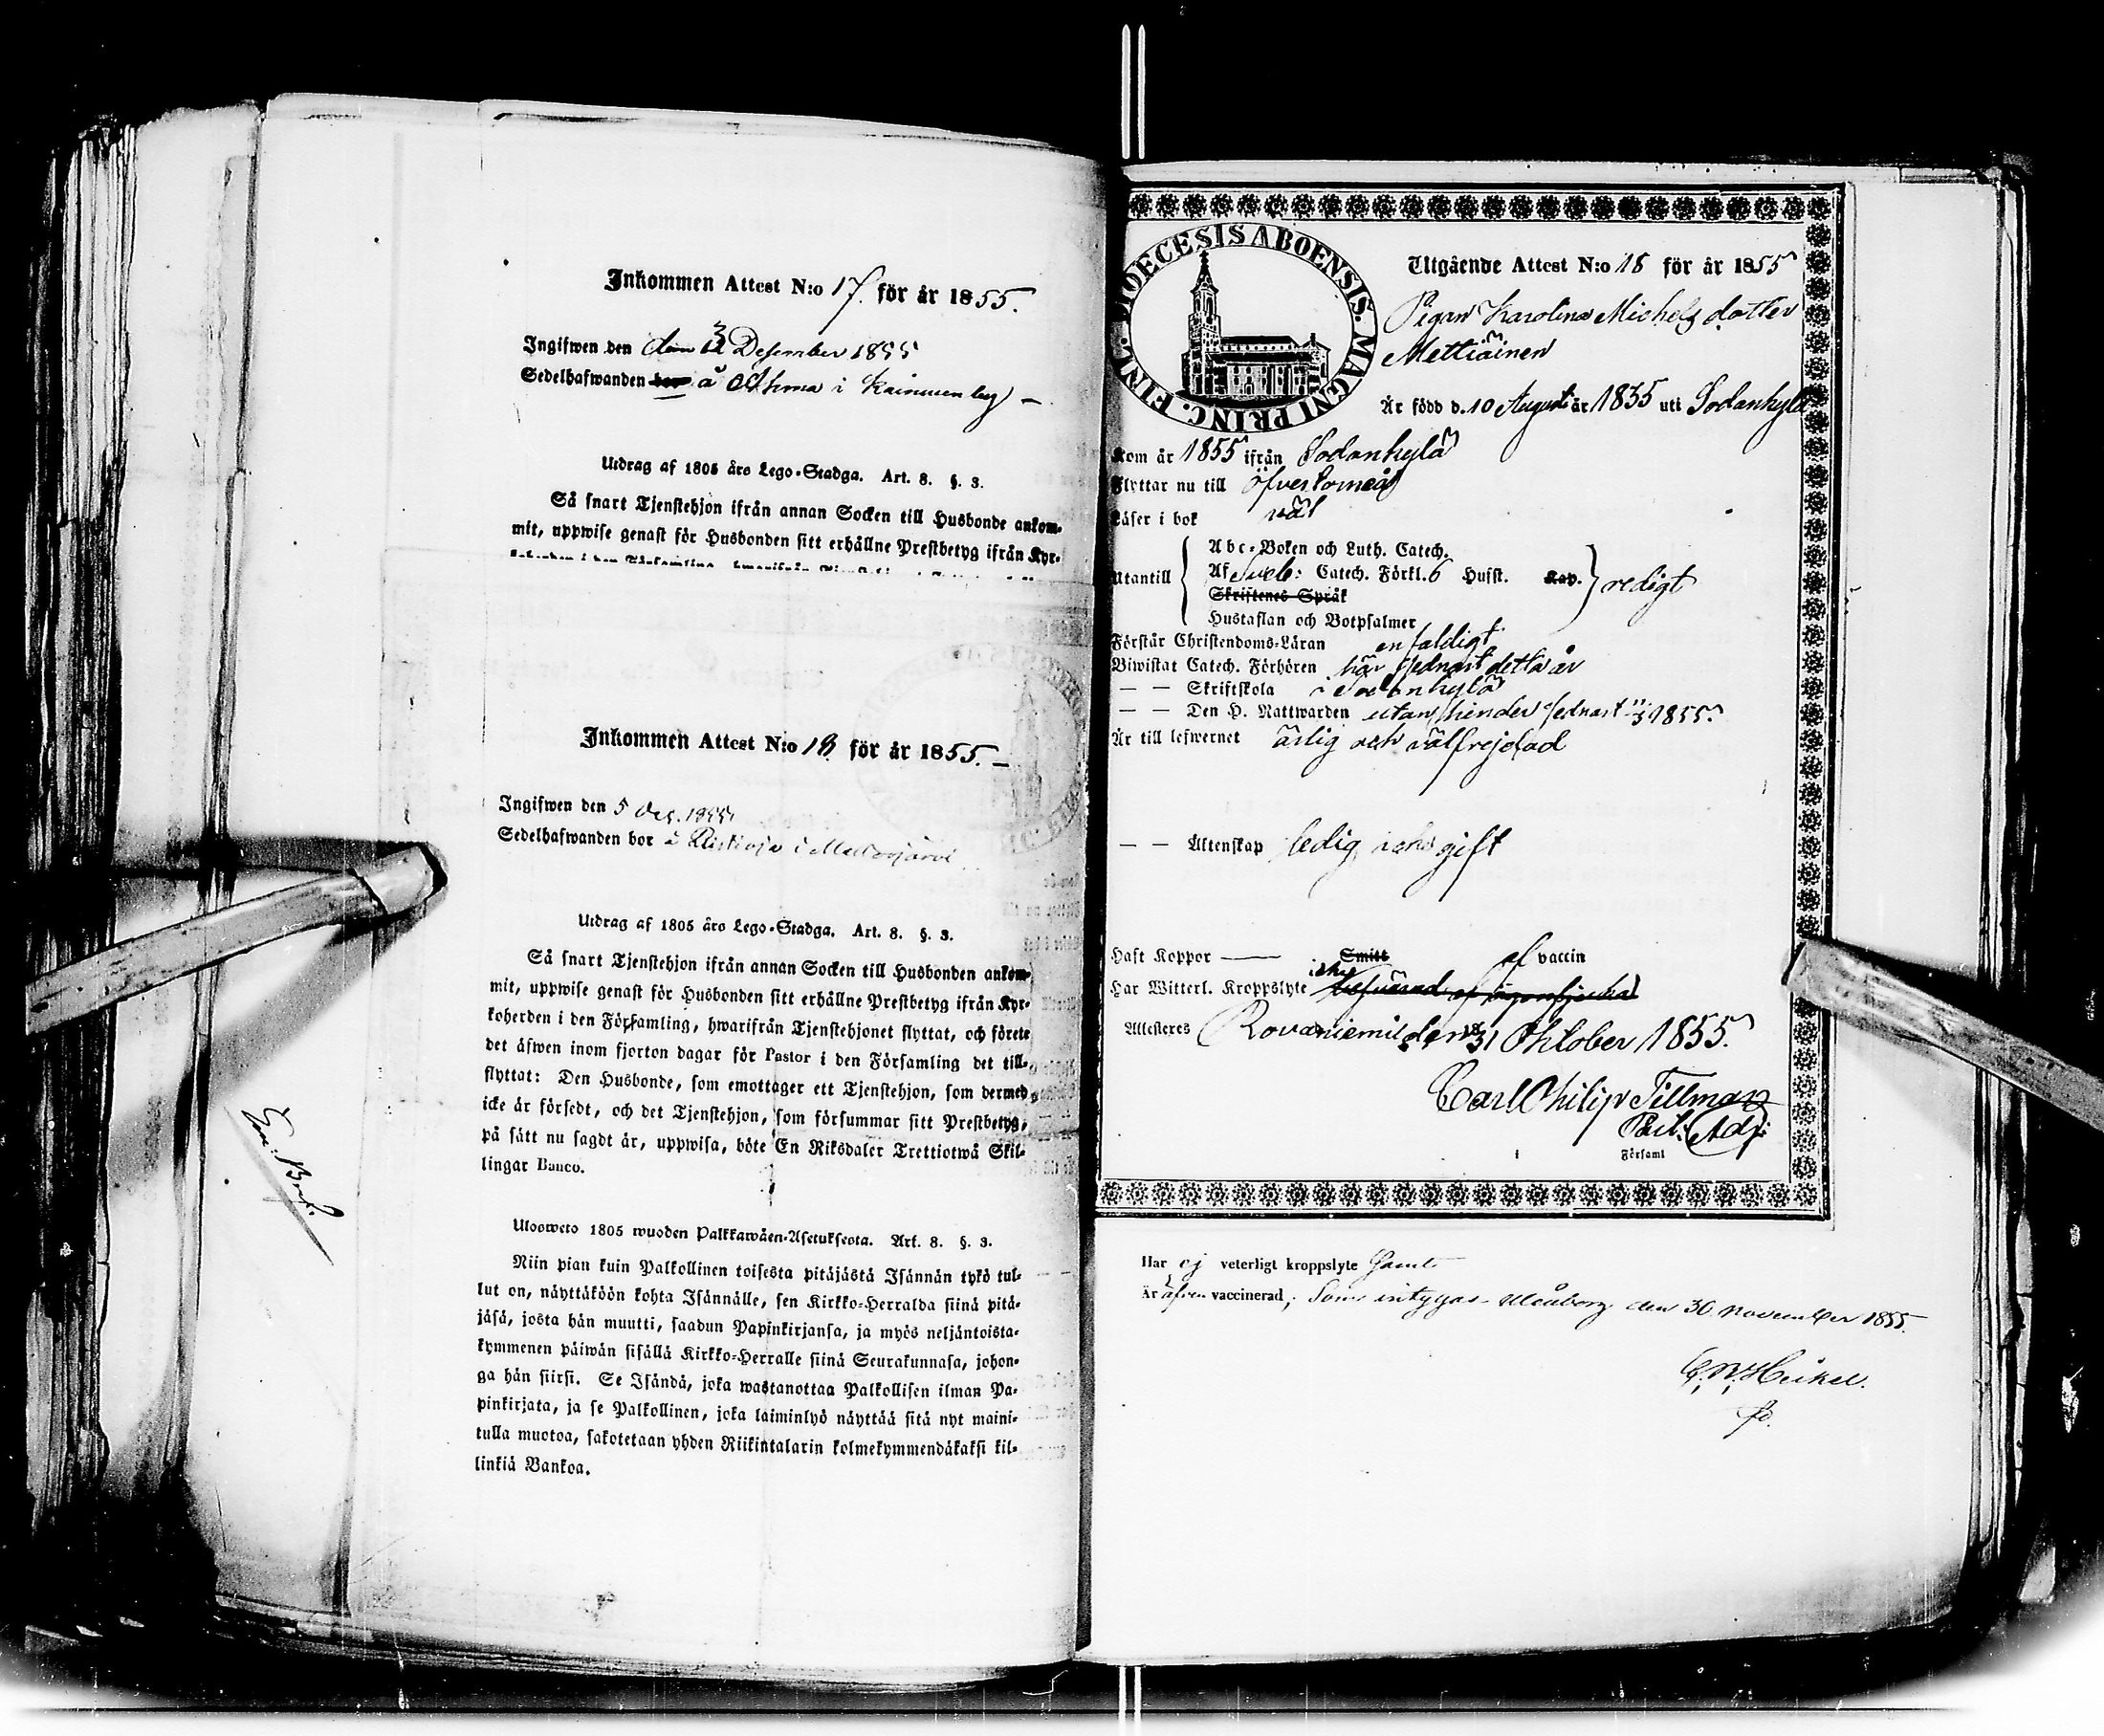 Inkommen Attest N:o 17. för år 1855.
Ingifwen den 3 Desember 1855
Sedelhafwanden å i Kainuun by
Utdrag af 1805 års Lego-Stadga. Art. 8. §. 3.
Så snart Tjenstehjon ifrån annan Socken till Husbonde ankom-
mit, uppwise genast för Husbonden sitt erhållne Prestbetyg ifrån Kyr-
Inkommen Attest N:o 18. för år 1855.
Ingifwen den 5 Dec. 1855
Sedelhafwanden bor å i
Utdrag af 1805 års Lego-Stadga. Art. 8. §. 3.
Så snart Tjenstehjon ifrån annan Socken till Husbonden ankom-
mit, uppwise genast för Husbonden sitt erhållne Prestbetyg ifrån Kyr-
koherden i den Församling, hwarifrån Tjenstehjonet flyttat, och förete
det äfwen inom fjorton dagar för Pastor i den Församling det till-
flyttat: Den Husbonde, som emottager ett Tjenstehjon, som dermed
icke är försedt, och det Tjenstehjon, som försummar sitt Prestbetyg,
på sätt nu sagdt är, uppwisa, böte En Riksdaler Trettiotwå Skil-
lingar Banco.
Ulosweto 1805 wuoden Palkkawäen-Asetuksesta. Art. 8. §. 3.
Niin pian kuin Palkollinen toisesta pitäjästä Isännän tykö tul-
lut on, näyttäköön kohta Isännälle, sen Kirkko-Herralda siinä pitä-
jäsä, josta hän muutti, saadun Papinkirjansa, ja myös neljäntoista-
kymmenen päiwän sisällä Kirkko-Herralle siinä Seurakunnasa, johon-
ga hän siirsi. Se Isändä, joka wastanottaa Palkollisen ilman Pa-
pinkirjata, ja se Palkollinen, joka laiminlyö näyttää sitä nyt maini-
tulla muotoa, sakotetaan yhden Riikintalarin kolmekymmendäkaksi kil-
linkiä Bankoa.
DIOECESIS ABOENSIS. MAGNI PRINC. FINL.
Utgående Attest N:o 18 för år 1855
Pigan Karolina Michelsdotter
Mettiäinen
Är född d. 10 Augusti år 1835 uti Sodankylä
Kom år 1855 ifrån Sodankylä
Flyttar nu till Öfvertorneå
Läser i bok väl
Utantill
Abc-Boken och Luth. Catech.
Af Sveb: Catech. Förkl. 6 Husst. Kap.
Skriftenes Språk
Hustaflan och Botpsalmer
redigt
Förstår Christendoms-Läran enfaldigt
Biwistat Catech. Förhören här sednast detta år
— — Skriftskola i Sodankylä
— — Den H. Nattwarden utan hinder sednast 1855.
Är till lefwernet ärlig och välfrejdad
— — Äktenskap ledig gift
Haft Koppor —— Smitt af vaccin
Har Witterl. Kroppslyte icke
Attesteres Rovaniemi den 31 Oktober 1855.
Carl Philip Tillman
Past: Adj:
Församl
Har ej veterligt kroppslyte samt
Är äfven vaccinerad; Som intygas Uleåborg den 30 november 1855.